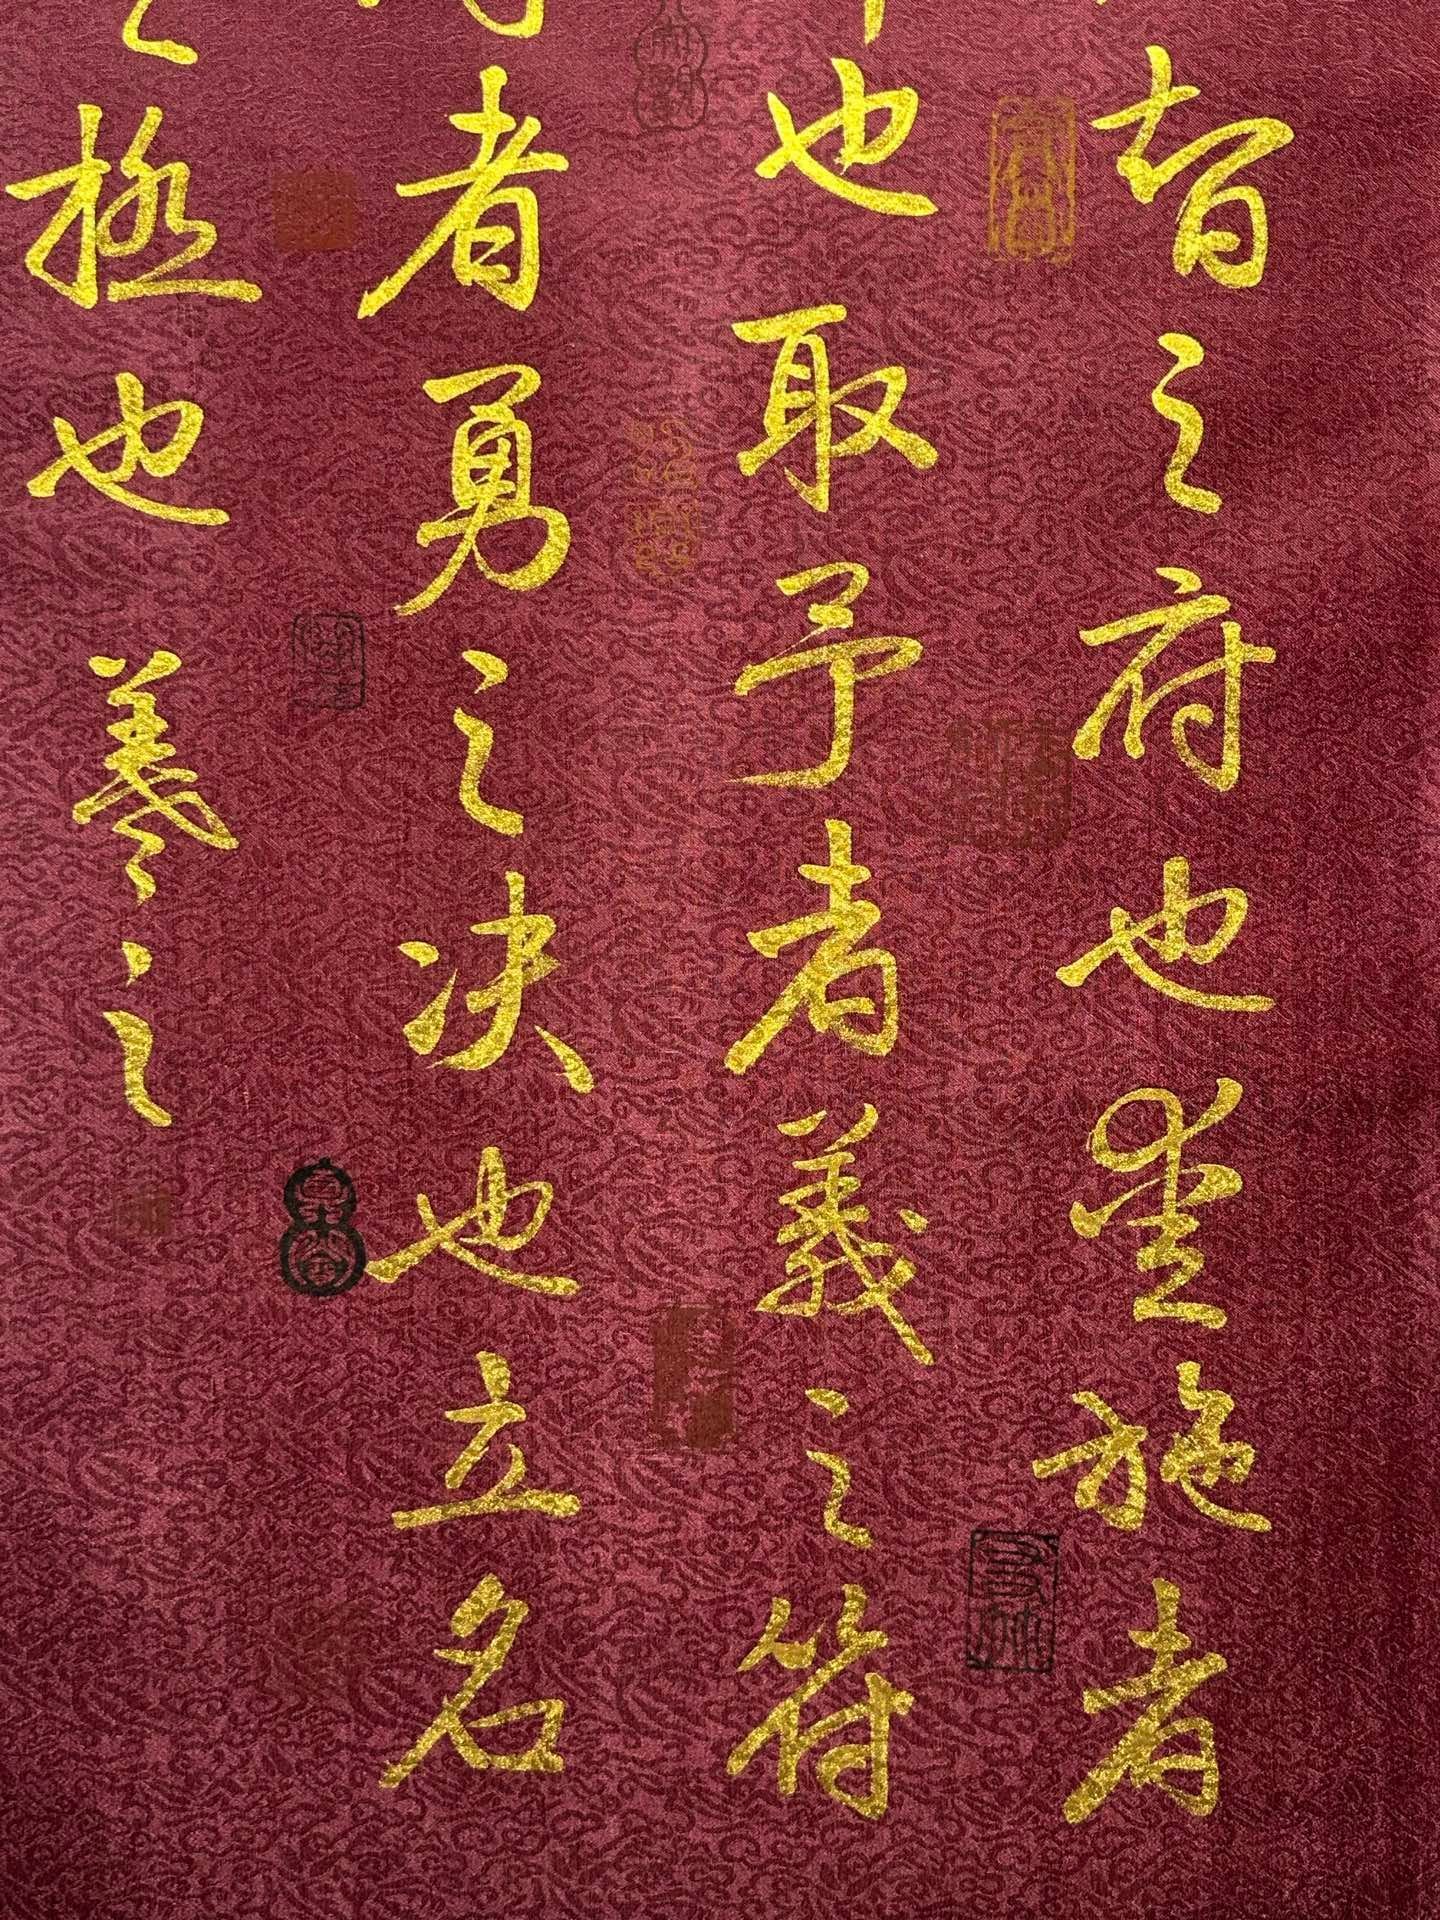 智之府也愛施者
也取予者義之符
者勇之决也立名
之極也羲之